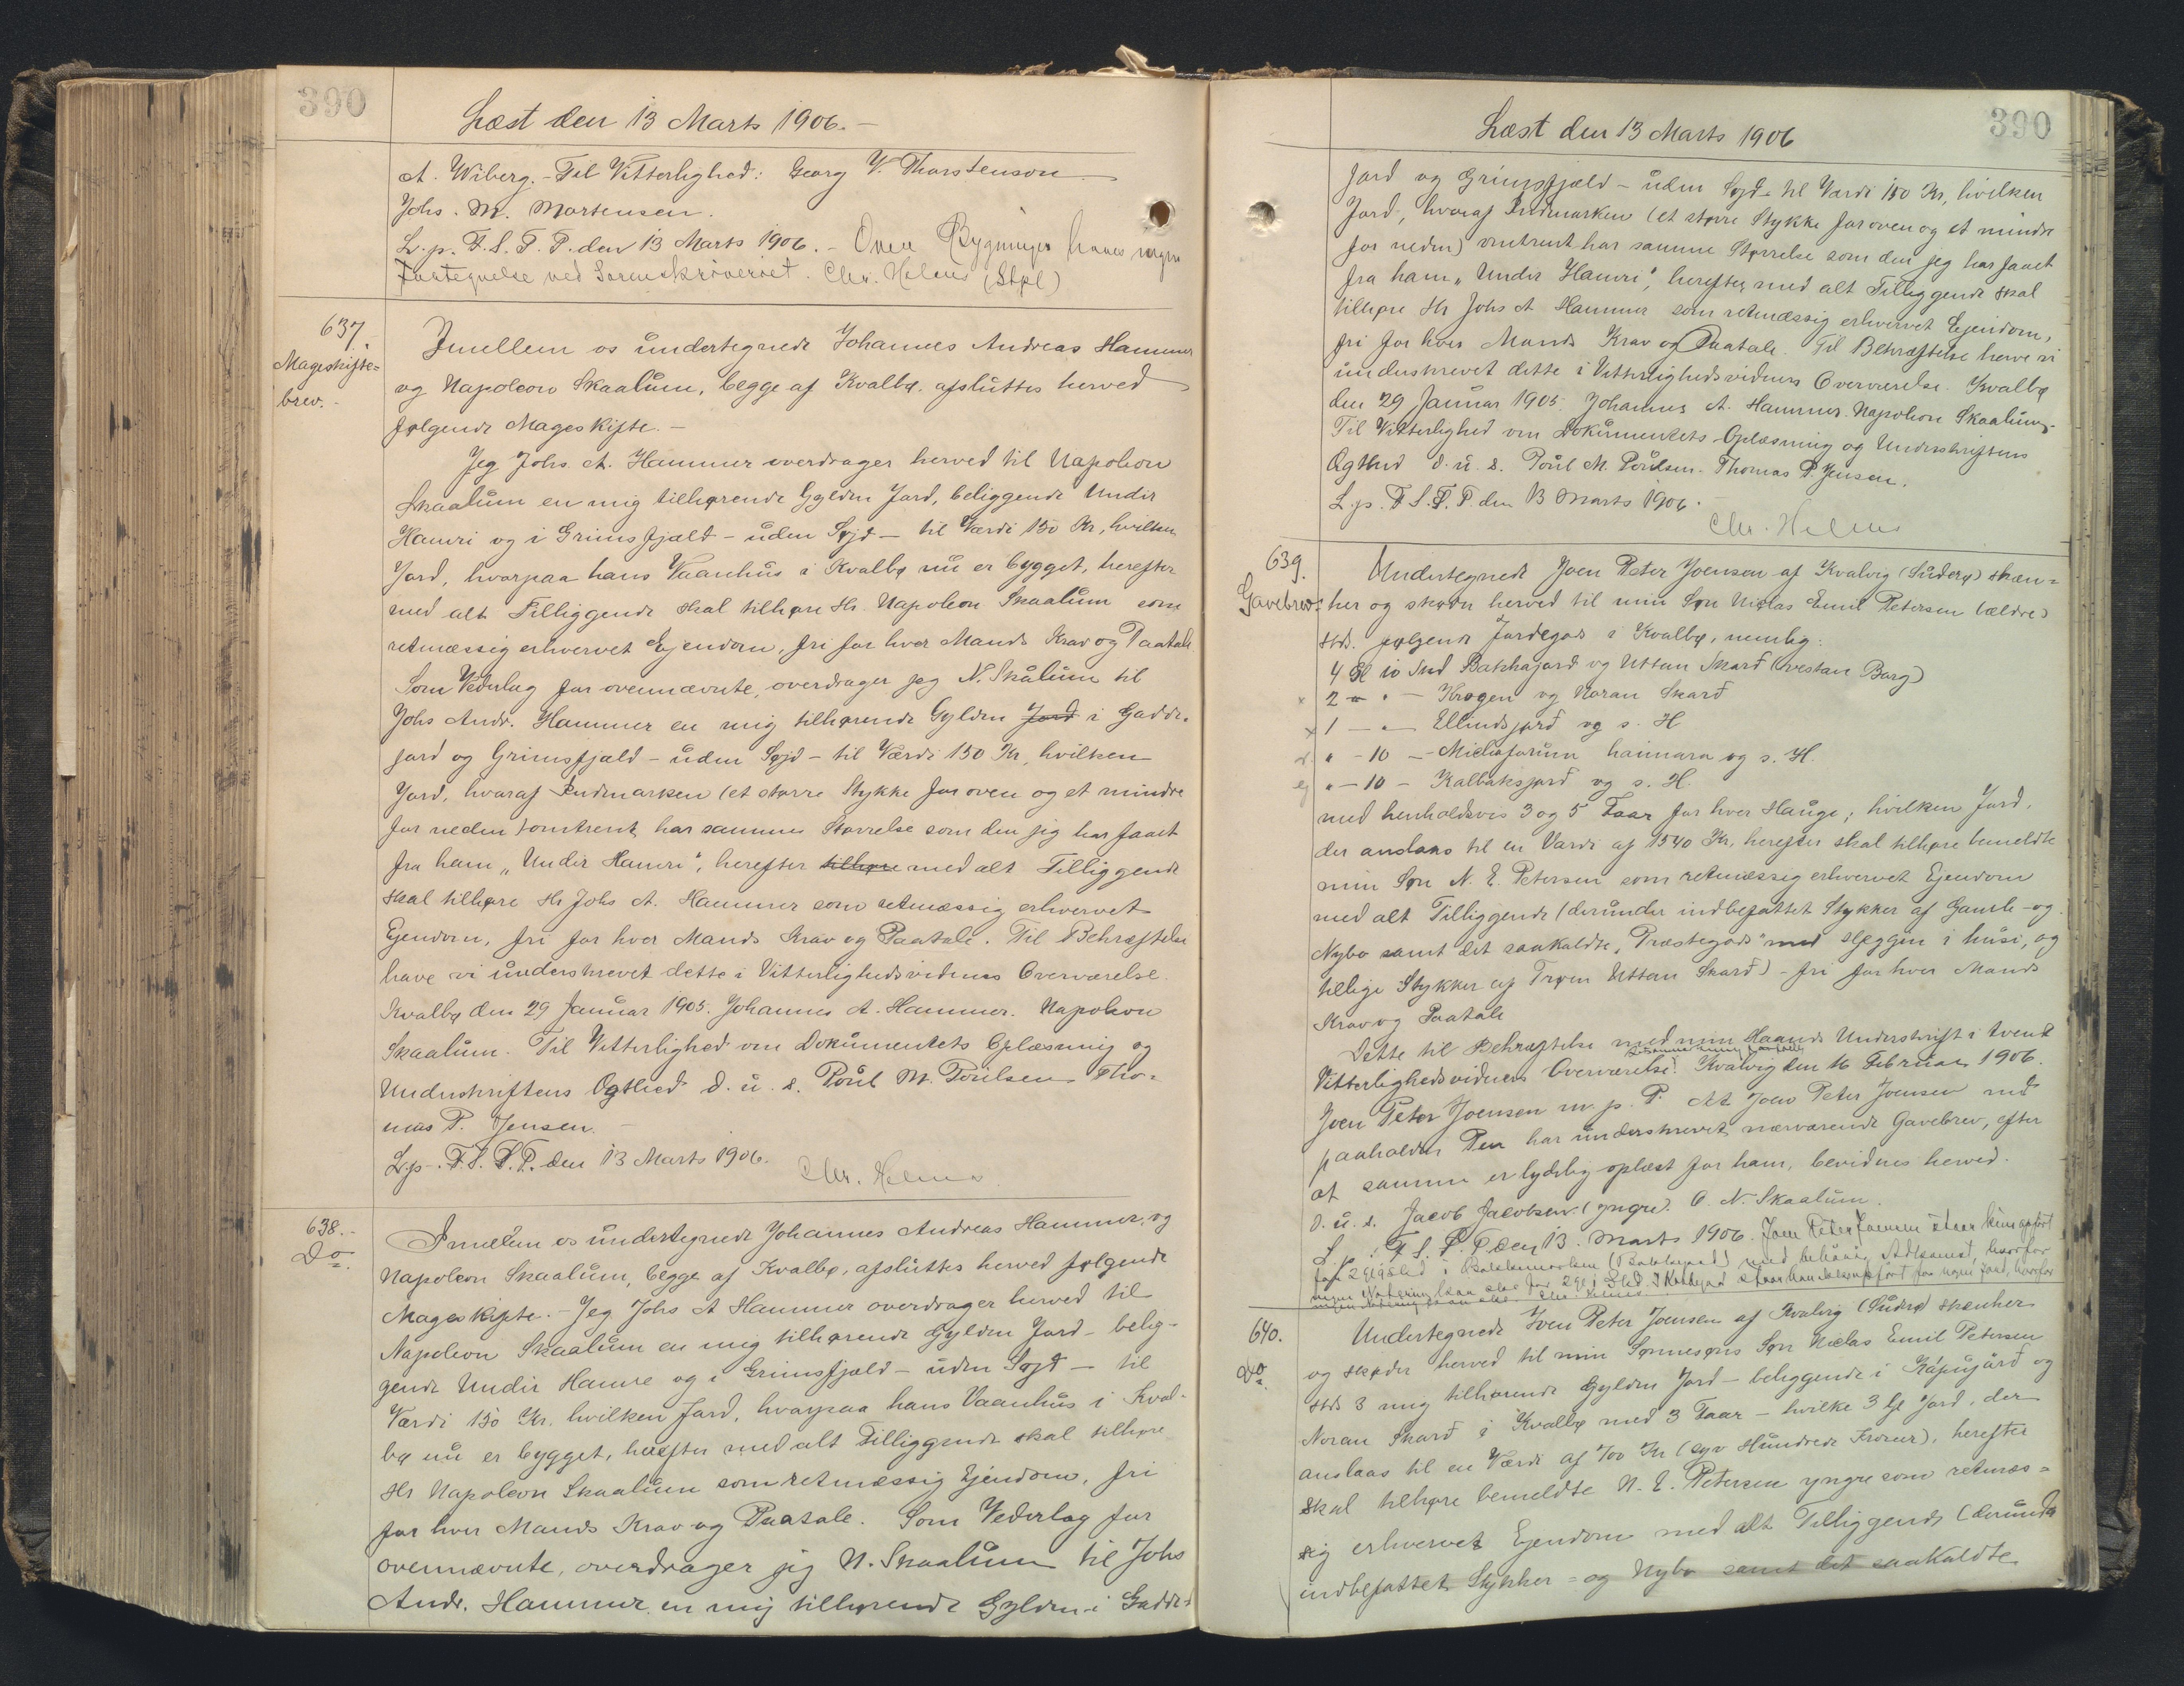 390
Læst den 13 Marts 1906. –
A. Wiberg. – Til Vitterlighed: Georg V. Thorstenson
Johs. M. Mortensen.
L. p. F. S. T. P. den 13 Marts 1906. – Om Bygningen haves ingen
Fortegnelse ved Sorenskriveriet. Chr. Helms (Stpl)
637.
Mageskifte=
brev. –
Imellem os undertegnede Johannes Andreas Hammer
og Napoleon Skaalum, begge af Kvalbø, afsluttes herved
følgende Mageskifte. –
Jeg Johs. A. Hammer overdrager herved til Napoleon
Skaalum en mig tilhørende Gylden Jord, beliggende Undir
Hamri og i Grimsfjæld – uden Søjd – til Værdi 150 Kr, hvilken
Jord, hvorpaa hans Vaanhus i Kvalbø nu er bygget, herefter
med alt Tilliggende skal tilhøre Hr. Napoleon Skaalum som
retmæssig erhvervet Ejendom, fri for hver Mands Krav og Paatale.
Som Vederlag for ovennævnte, overdrager jeg N. Skålum til
Johs Andr. Hammer en mig tilhørende Gylden Jord i Gadde-
jord og Grimsfjæld – uden Søjd – til Værdi 150 Kr, hvilken
Jord, hvoraf Indmarken (et større Stykke for oven og et mindre
for neden) omtrent har samme Størrelse som den jeg har faaet
fra ham „Undir Hamri", herefter tilhøre med alt Tilliggende
skal tilhøre Hr Johs A. Hammer som retmæssig erhvervet
Ejendom, fri for hver Mands Krav og Paatale. Til Bekræftelse
have vi underskrevet dette i Vitterlighedsvidners Overværelse.
Kvalbø den 29 Januar 1905. Johannes A. Hammer. Napoleon
Skaalum. Til Vitterlighed om Dokumentets Oplæsning og
Underskriftens Ægthed d. u. s. Poul M. Poulsen Tho-
mas P. Jensen. –
L. p. F. S. T. P. den 13 Marts 1906.
Chr. Helms
638. –
Do
Imellem os undertegnede Johannes Andreas Hammer, og
Napoleon Skaalum, begge af Kvalbø, afsluttes herved følgende
Mageskifte. – Jeg Johs A Hammer overdrager herved til
Napoleon Skaalum en mig tilhørende Gylden Jord – belig-
gende Undir Hamre og i Grimsfjæld – uden Søjd – til
Værdi 150 Kr. hvilken Jord, hvorpaa hans Vaanhus i Kval-
bø nu er bygget, herefter med alt Tilliggende skal tilhøre
Hr Napoleon Skaalum som retmæssig Ejendom, fri
for hver Mands Krav og Paatale. Som Vederlag for
ovennævnte, overdrager jeg N. Skaalum til Johs
Andr. Hammer en mig tilhørende Gylden i Gadde-
390
Læst den 13 Marts 1906
jord og Grimsfjæld – uden Søjd – til Værdi 150 Kr, hvilken
Jord, hvoraf Indmarken (et større Stykke for oven og et mindre
for neden) omtrent har samme Størrelse som den jeg har faaet
fra ham „Undir Hamri", herefter med alt Tilliggende skal
tilhøre Hr Johs A Hammer som retmæssig erhvervet Ejendom,
fri for hver Mands Krav og Paatale. Til Bekræftelse have vi
underskrevet dette i Vitterlighedsvidners Overværelse. Kvalbø
den 29 Januar 1905. Johannes A. Hammer. Napoleon Skaalum.
Til Vitterlighed om Dokumentets Oplæsning og Underskriftens
Ægthed d. u. s. Poul M. Poulsen. Thomas P. Jensen.
L. p. F. S. T. P. den 13 Marts 1906.
Chr. Helms
639.
Gavebrev:
Undertegnede Joen Peter Joensen af Kvalvig (Suderø) skæn=
her og skøder herved til min Søn Niclas Emil Petersen (ældre)
stds. følgende Jordegods i Kvalbø, nemlig:
4 Gl 10 Snd Bakkajord og Uttan Skarð (vestan Barg)
x 2 – „ – Krogen og Noran Skarð
x 1 – „ – Ellindsjord og s. H
„ – 10 – Michaforum haimara og s. H.
„ – 10 – Kalbaksjord og s. H.
med henholdsvis 3 og 5 Faar for hver Hauge; hvilken Jord,
der anslaas til en Værdi af 1540 Kr, herefter skal tilhøre bemeldte
min Søn N. E. Petersen som retmæssig erhvervet Ejendom
med alt Tilliggende (derunder indbefattet Stykker af Gamle- og
Nybø samt det saakaldte „Præstegods" med sleggin i husi, og
tillige Stykker af Trøen Uttan Skarð) – fri for hver Mands
Krav og Paatale
Dette til Bekræftelse med min Haands Underskrift i tvende
Vitterlighedsvidners Overværelse. Kvalvig den 16 Februar 1906.
Joen Peter Joensen m. p. P. At Joen Peter Joensen med
paaholden Pen har underskrevet nærværende Gavebrev, efter
at samme er lydelig oplæst for ham, bevidnes herved.
D. u. s. Jacob Jacobsen (yngre). O. N. Skaalum.
L. p. F. S. T. P. den 13. Marts 1906. Joen Peter Joensen staar kun opført
for 2 Gl i Bakkemarken (Bakkejord) med behørig Adkomst, hvorfor
ingen Notering kan ske for 2 Gl
640.
Do
Undertegnede Joen Peter Joensen af Kvalvig (Suderø) skænker
og skøder herved til min Sønnesøns Søn Niclas Emil Petersen
stds 3 mig tilhørende Gylden Jord – beliggende i Kápujørð og
Noran Skarð i Kvalbø med 3 Faar – hvilke 3 Gl Jord, der
anslaas til en Værdi af 700 Kr (syv Hundrede Kroner), herefter
skal tilhøre bemeldte N. E. Petersen yngre som retmæs=
sig erhvervet Ejendom med alt Tilliggende (derunder
indbefattet Stykker = og Nybø samt det saakaldte